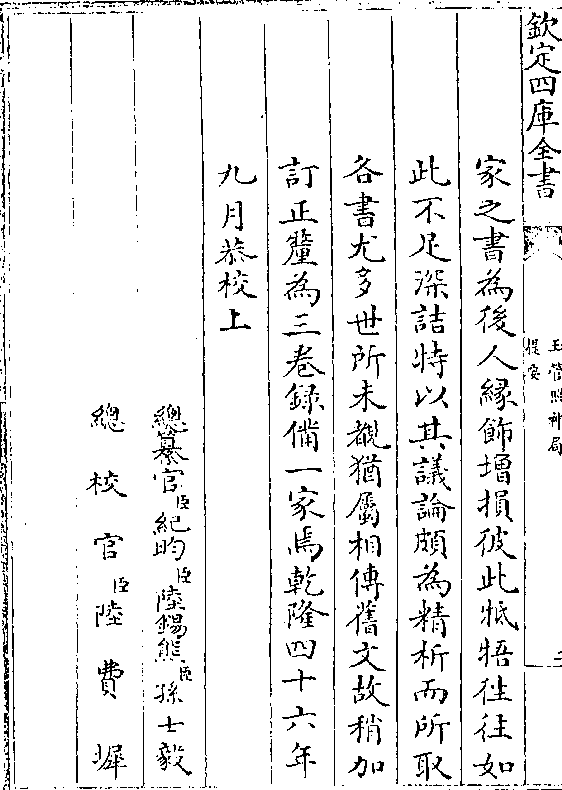 欽定四庫全書
玉管照神局
提要
二
家之書為後人緣飾增損彼此牴牾往往如
此不足深詰特以其議論頗為精析而所取
各書尤多世所未覩猶屬相傳舊文故稍加
訂正釐為三卷録備一家焉乾隆四十六年
九月恭校上
總纂官臣紀昀臣陸錫熊臣孫士毅
總校官臣陸費墀